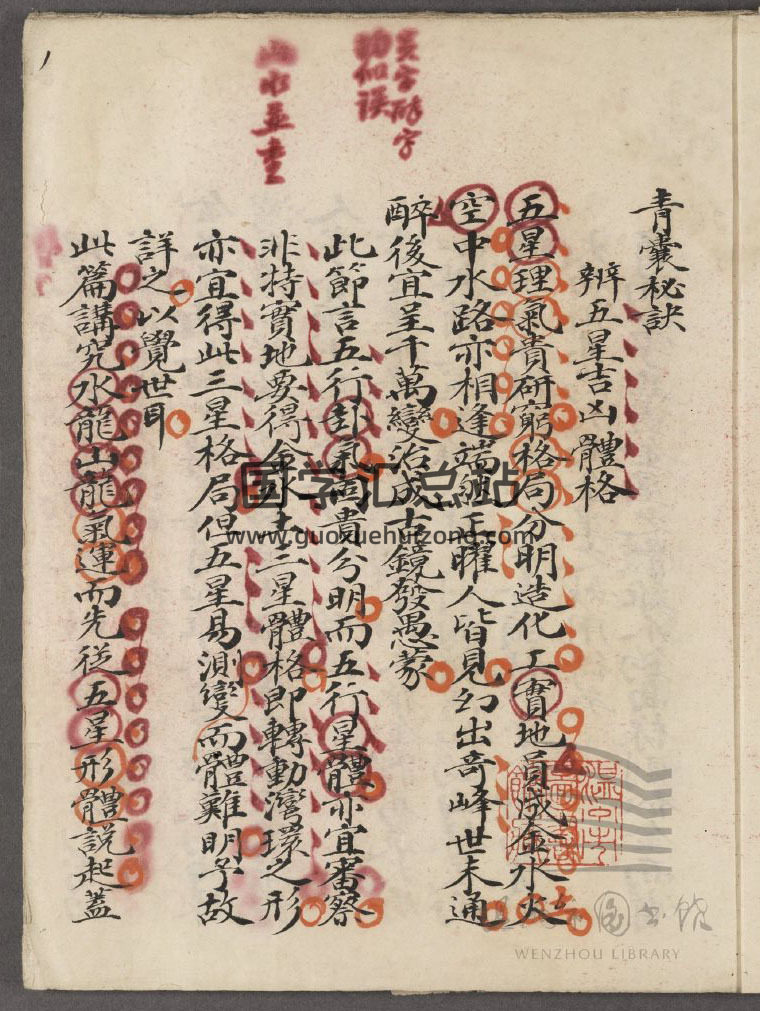 青囊秘訣
辨五星吉凶體格
五星理氣貴研窮格局分明造化工實地員成金水火
空中水路亦相逢端組正曜人皆見幻出奇峰世未通
醉後宜呈千萬變治成古鏡發愚蒙
此節言五行卦氣尚貴分明而五行星體亦宜審察
非特實地要得金水土三星體格即轉動灣環之形
亦宜得此三星格局但五星易測變而體難明予故
詳之以覺世耳
此篇講究水龍山龍氣運而先從五星形體說起蓋
呈字醉字
似誤
山水並重
国学汇总站
www.guoxuehuizong.com
温州市圖書館
WENZHOU LIBRARY
1